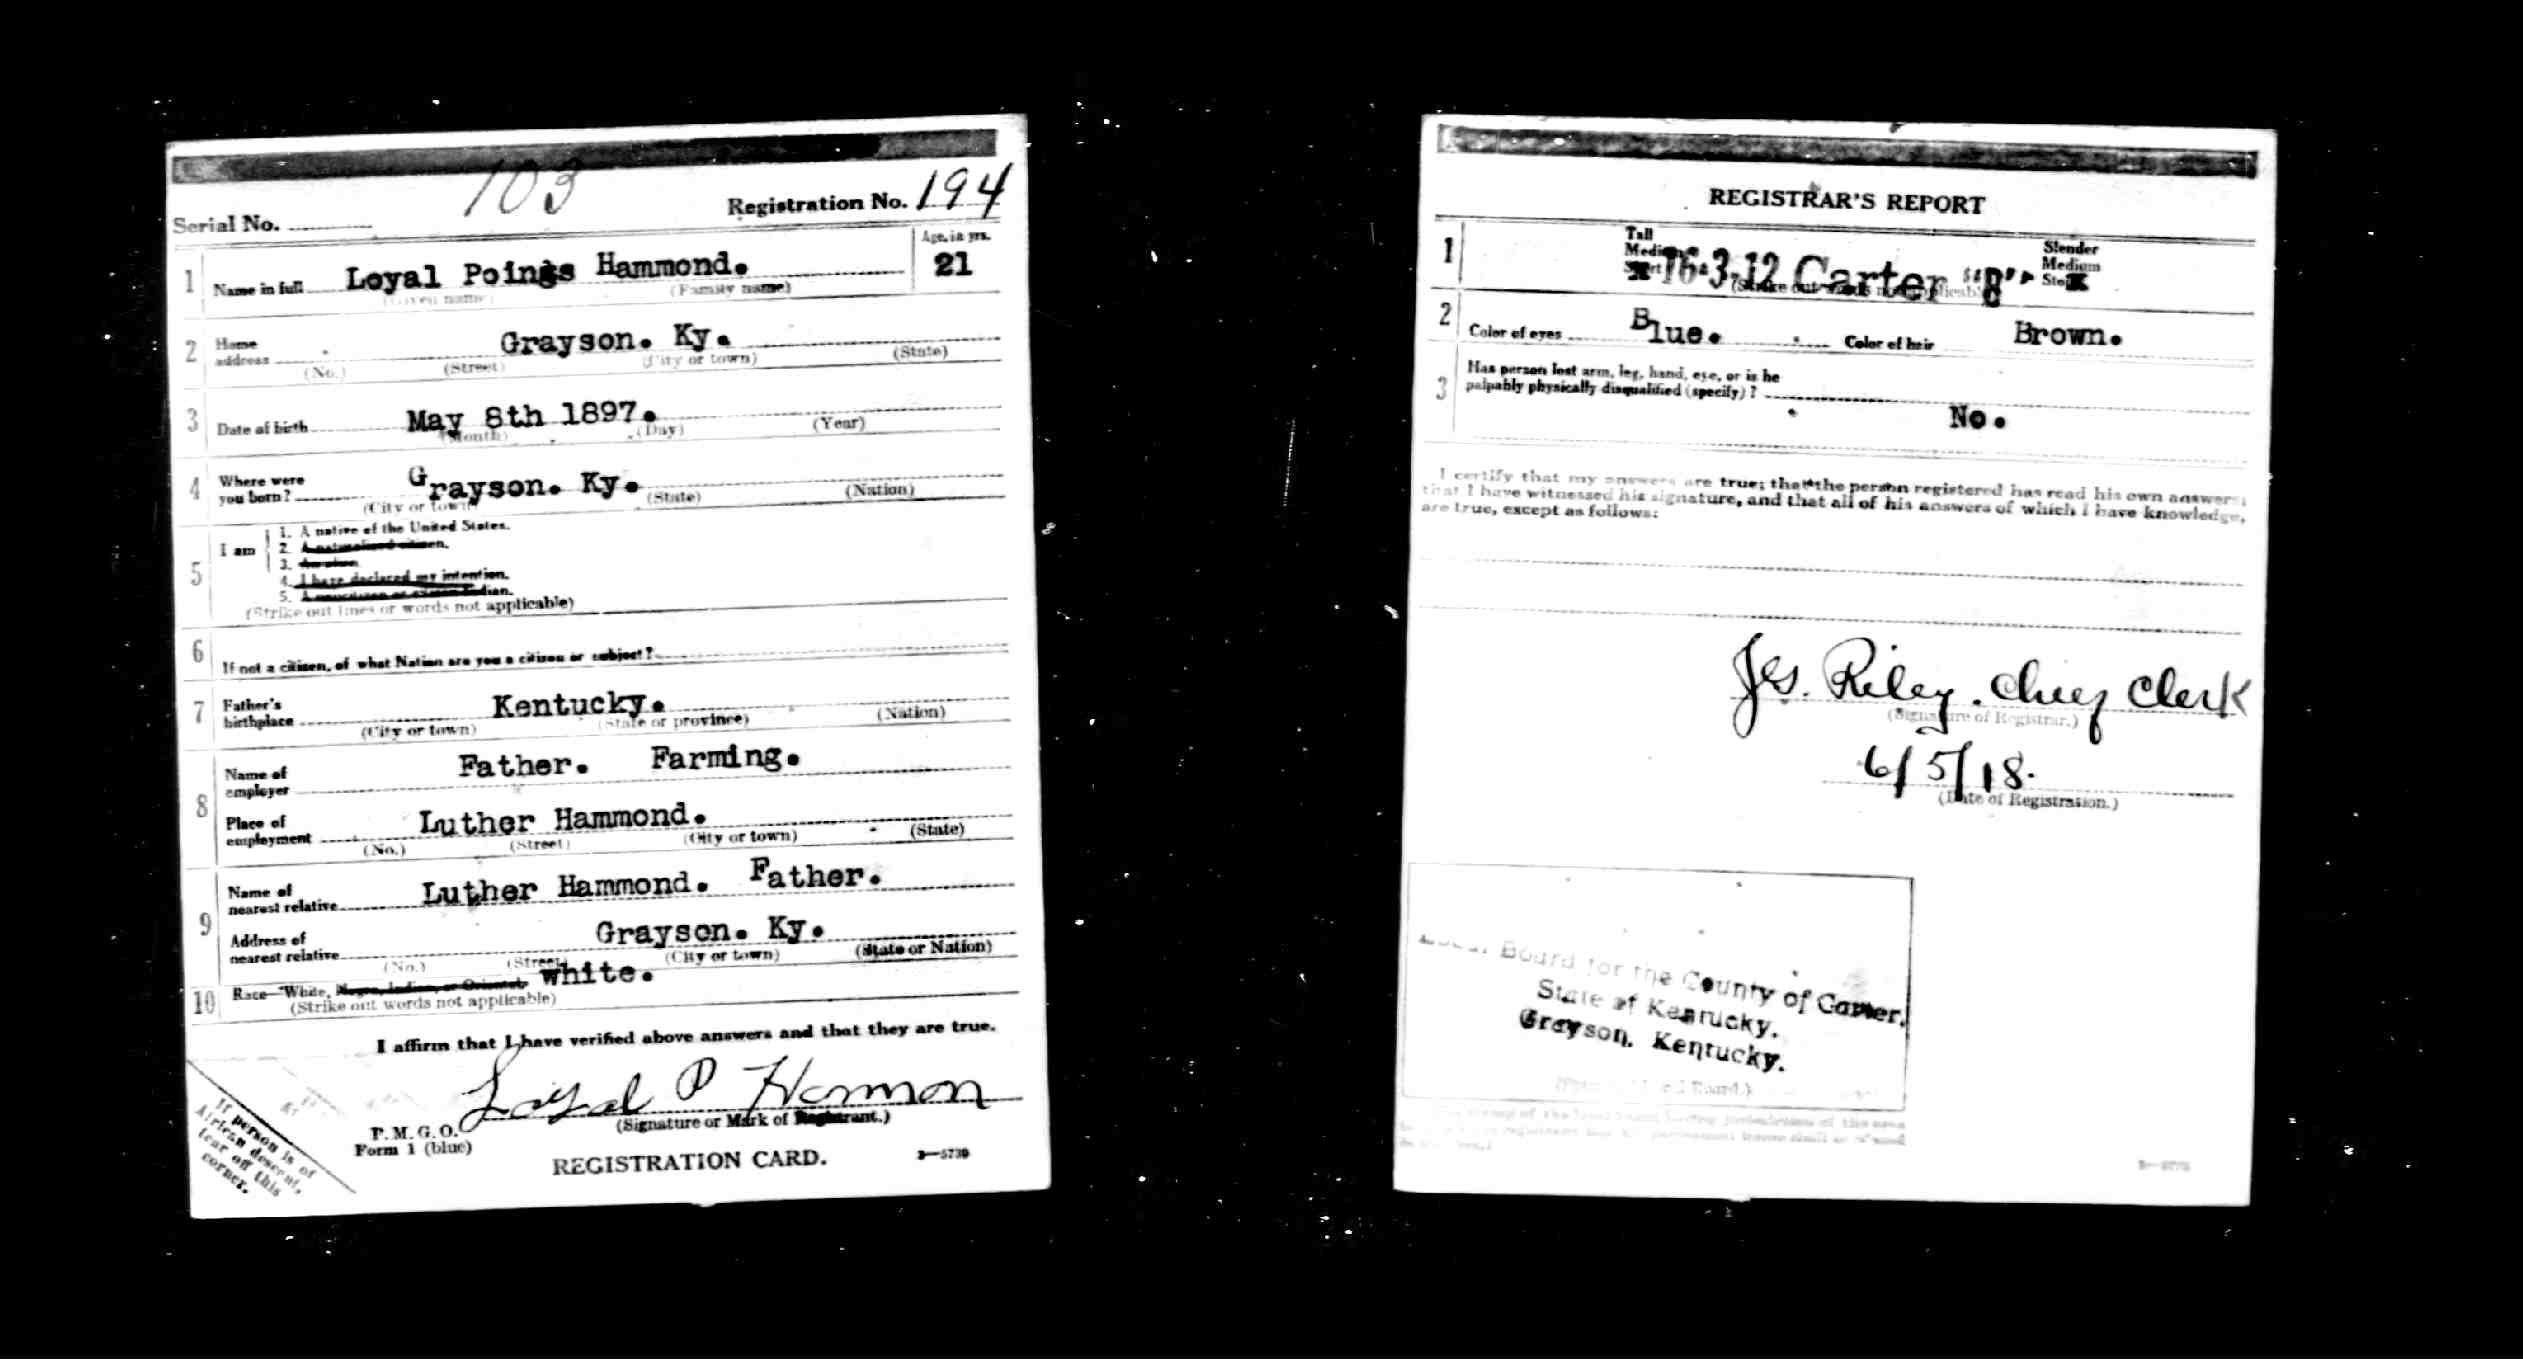 103
Serial No.
Registration No. 194
1 Name in full Loyal Poings Hammond.
(Given name) (Family name)
Age, in yrs.
21
2 Home address Grayson. Ky.
(No.) (Street) (City or town) (State)
3 Date of birth May 8th 1897.
(Month) (Day) (Year)
4 Where were you born? Grayson. Ky.
(City or town) (State) (Nation)
5 I am
1. A native of the United States.
2. A naturalized citizen.
3. An alien.
4. I have declared my intention.
5. A noncitizen or citizen Indian.
(Strike out lines or words not applicable)
6 If not a citizen, of what Nation are you a citizen or subject?
7 Father's birthplace Kentucky.
(City or town) (State or province) (Nation)
8 Name of employer Father. Farming.
Place of employment Luther Hammond.
(No.) (Street) (City or town) (State)
9 Name of nearest relative Luther Hammond. Father.
Address of nearest relative Grayson. Ky.
(No.) (Street) (City or town) (State or Nation)
10 Race—White, Negro, Indian, or Oriental. White.
(Strike out words not applicable)
I affirm that I have verified above answers and that they are true.
Loyal P Hammon
(Signature or Mark of Registrant.)
P. M. G. O.
Form 1 (blue)
REGISTRATION CARD.
3—5739
If person is of
African descent,
tear off this
corner.
REGISTRAR'S REPORT
1 Tall
Medium
Short
16-3-12 Carter "B"
Slender
Medium
Stout
(Strike out words not applicable)
2 Color of eyes Blue. Color of hair Brown.
3 Has person lost arm, leg, hand, eye, or is he
palpably physically disqualified (specify)?
No.
I certify that my answers are true; that the person registered has read his own answers;
that I have witnessed his signature, and that all of his answers of which I have knowledge,
are true, except as follows:
Jes. Riley. Chief Clerk
(Signature of Registrar.)
6/5/18.
(Date of Registration.)
Local Board for the County of Carter.
State of Kentucky.
Grayson, Kentucky.